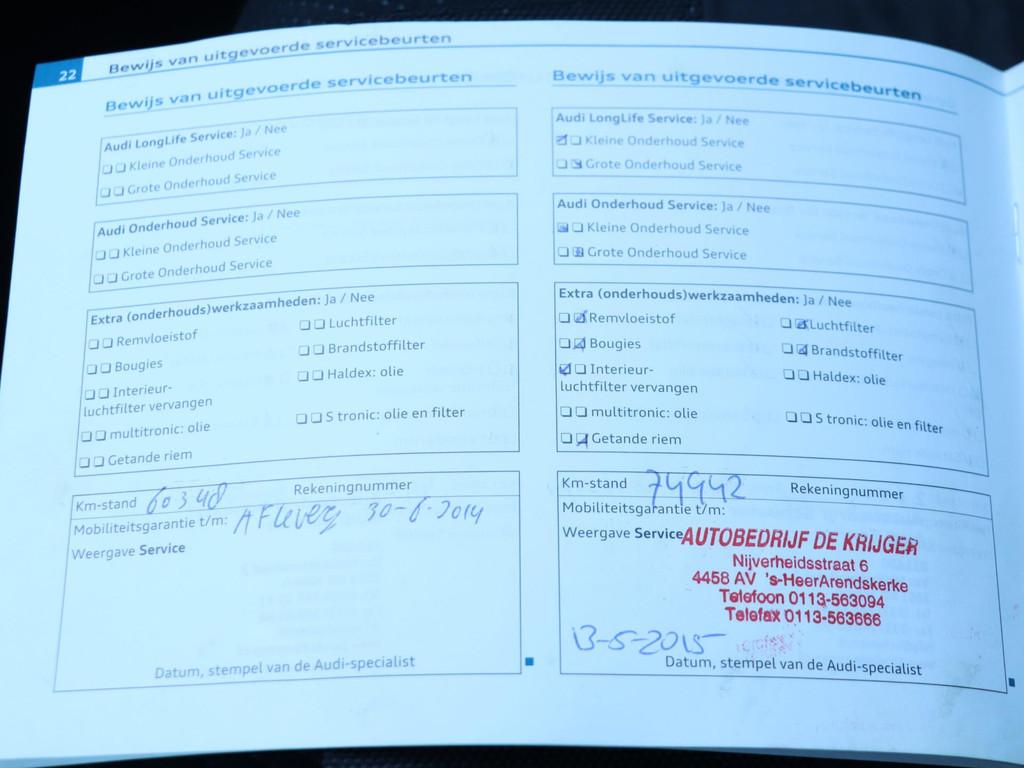 22 Bewijs van uitgevoerde servicebeurten
Bewijs van uitgevoerde servicebeurten
Audi LongLife Service: Ja / Nee
Kleine Onderhoud Service
Grote Onderhoud Service
Audi Onderhoud Service: Ja / Nee
Kleine Onderhoud Service
Grote Onderhoud Service
Extra (onderhouds)werkzaamheden: Ja / Nee
Remvloeistof
Luchtfilter
Bougies
Brandstoffilter
Interieur-
luchtfilter vervangen
Haldex: olie
multitronic: olie
S tronic: olie en filter
Getande riem
Km-stand 60348 Rekeningnummer
Mobiliteitsgarantie t/m: Aflevey 30-6-2014
Weergave Service
Datum, stempel van de Audi-specialist
Bewijs van uitgevoerde servicebeurten
Audi LongLife Service: Ja / Nee
Kleine Onderhoud Service
Grote Onderhoud Service
Audi Onderhoud Service: Ja / Nee
Kleine Onderhoud Service
Grote Onderhoud Service
Extra (onderhouds)werkzaamheden: Ja / Nee
Remvloeistof
Luchtfilter
Bougies
Brandstoffilter
Interieur-
luchtfilter vervangen
Haldex: olie
multitronic: olie
S tronic: olie en filter
Getande riem
Km-stand 74942 Rekeningnummer
Mobiliteitsgarantie t/m:
Weergave Service AUTOBEDRIJF DE KRIJGER
Nijverheidsstraat 6
4458 AV 's-HeerArendskerke
Telefoon 0113-563094
Telefax 0113-563666
13-5-2015
Datum, stempel van de Audi-specialist